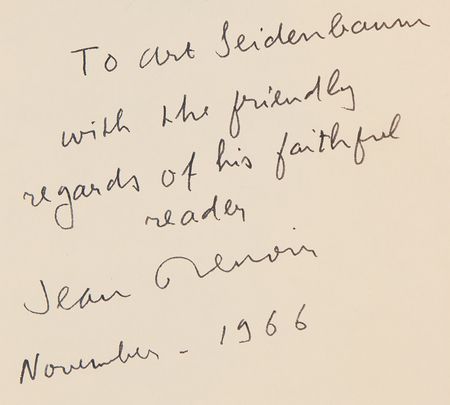 To Art Seidenbaum
with the friendly
regards of his faithful
reader
Jean Renoir
November - 1966